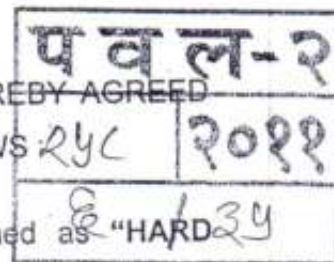 पवल-२
REBY AGREED
WS २५८ २०११
ned as "HARD
६/३५